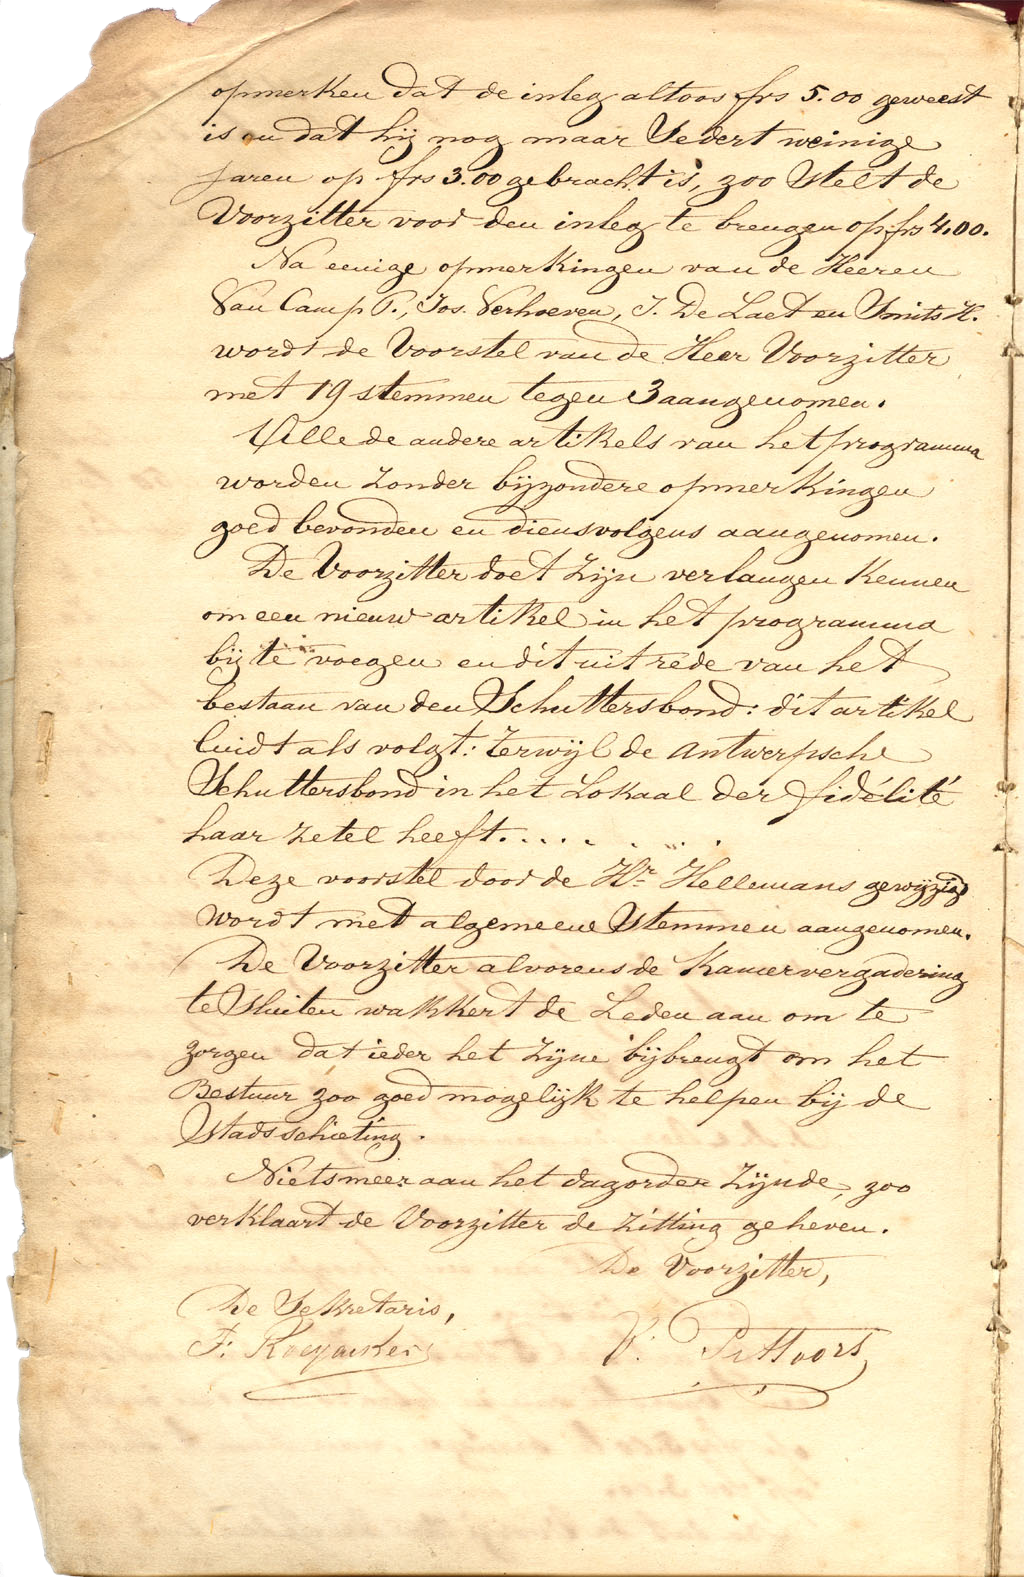 opmerken dat de inleg altoos frs 5.00 geweest
is en dat hij nog maar Sedert weinige
jaren op frs 3.00 gebracht is, zoo Stelt de
Voorzitter voor den inleg te brengen op frs 4.00.
Na eenige opmerkingen van de Heeren
Van Camp P., Jos. Verhoeven, J. De Laet en Smits H.
wordt de Voorstel van de Heer Voorzitter
met 19 stemmen tegen 3 aangenomen.
Alle de andere artikels van het programma
worden zonder bijzondere opmerkingen
goed bevonden en diensvolgens aangenomen.
De Voorzitter doet zijn verlangen kennen
om een nieuw artikel in het programma
bij te voegen en dit uit rede van het
bestaan van den Schuttersbond: dit artikel
luidt als volgt: Terwijl de Antwerpsche
Schuttersbond in het Lokaal der fidélité
haar zetel heeft. . . . . . . .
Deze voorstel door de Hr Hellemans gewijzigd
wordt met algemeene Stemmen aangenomen.
De Voorzitter alvorens de Kamervergadering
te Sluiten wakkert de Leden aan om te
zorgen dat ieder het zijne bijbrengt om het
Bestuur zoo goed mogelijk te helpen bij de
Stadsschieting.
Niets meer aan het dagorder zijnde, zoo
verklaart de Voorzitter de zitting geheven.
De Voorzitter,
De Sekretaris,
F.
V. Pittoors